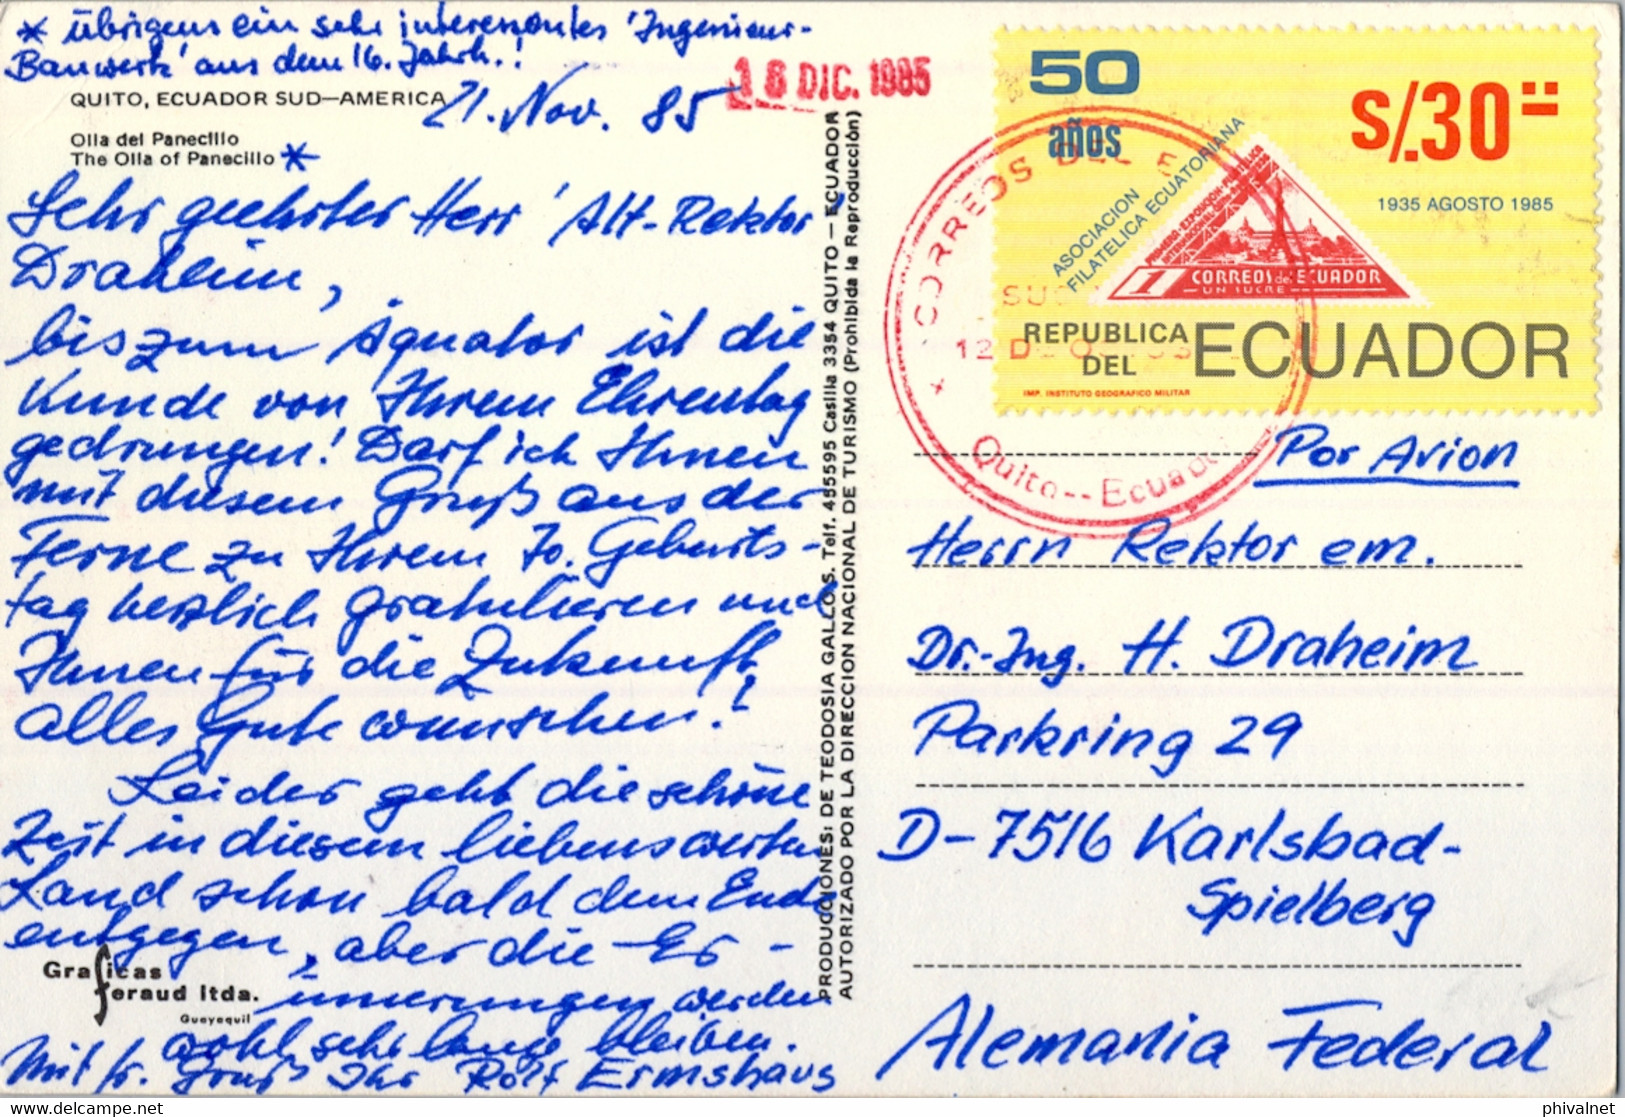 * Übrigens ein sehr interessantes 'Ingenieur-
Bauwerk' aus dem 16. Jahrh.!
QUITO, ECUADOR SUD—AMERICA
21. Nov. 85
Olla del Panecillo
The Olla of Panecillo *
Sehr geehrter Herr 'Alt-Rektor'
Draheim,
bis zum Äquator ist die
Kunde von Ihrem Ehrentag
gedrungen! Darf ich Ihnen
mit diesem Gruß aus der
Ferne zu Ihrem 70. Geburts-
tag herzlich gratulieren und
Ihnen für die Zukunft
alles Gute wünschen?
Leider geht die schöne
Zeit in diesem liebenswerten
Land schon bald dem Ende
entgegen, aber die Er-
innerungen werden
wohl sehr lange bleiben.
Mit fr. Gruß Ihr Rolf Ermshaus
Graficas
feraud ltda.
Guayaquil
PRODUCCIONES: DE TEODOSIA GALLOS. Telf. 455595 Casilla 3354 QUITO — ECUADOR
AUTORIZADO POR LA DIRECCION NACIONAL DE TURISMO (Prohibida la Reproducción)
16 DIC. 1985
50
años
S/.30
1935 AGOSTO 1985
ASOCIACION
FILATELICA ECUATORIANA
PRIMERA EXPOSICION FILATELICA
1 CORREOS del ECUADOR
UN SUCRE
REPUBLICA
DEL ECUADOR
IMP. INSTITUTO GEOGRAFICO MILITAR
CORREOS DEL E
12 D
Quito -- Ecuador
Por Avion
Herrn Rektor em.
Dr.-Ing. H. Draheim
Parkring 29
D-7516 Karlsbad-
Spielberg
Alemania Federal
phivalnet